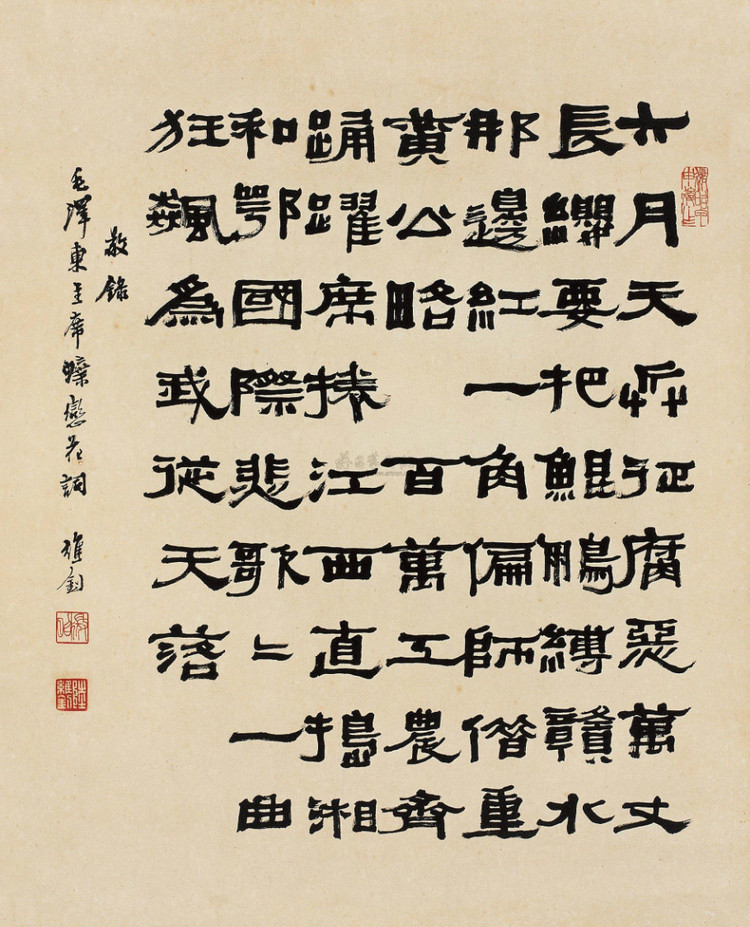 六月天兵征腐惡萬丈
長纓要把鯤鵬縛贛水
那邊紅一角偏師借重
黄公略 百萬工農齊
踊躍席捲江西直搗湘
和鄂國際悲歌〻一曲
狂飆爲我從天落
敬錄
毛澤東主席蝶戀花詞 維釗
陸維釗